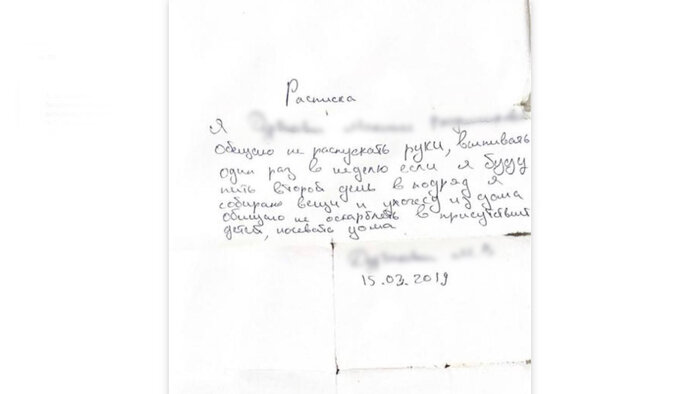 Расписка
Я
обещаю не распускать руки, выпивать
один раз в неделю если я буду
пить второй день в подряд я
собираю вещи и ухожу из дома
обещаю не оскарблять в присутствии
детей, ночевать дома
15.03.2019